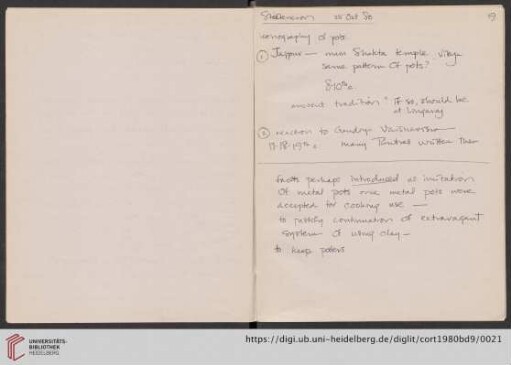 22 Oct 80
19
iconography of pots
① Jajpur — Shakta temple village
same pattern of pots?
8-10th c.
ancient tradition? If so, should be
at
② reaction to Gaudiya Vaishnavism
17-18-19th c many Puranas written then
facts perhaps introduced as imitation
of metal pots once metal pots were
accepted for cooking use —
to justify continuation of extravagant
system of using clay —
to keep potters
UNIVERSITÄTS-
BIBLIOTHEK
HEIDELBERG
https://digi.ub.uni-heidelberg.de/diglit/cort1980bd9/0021